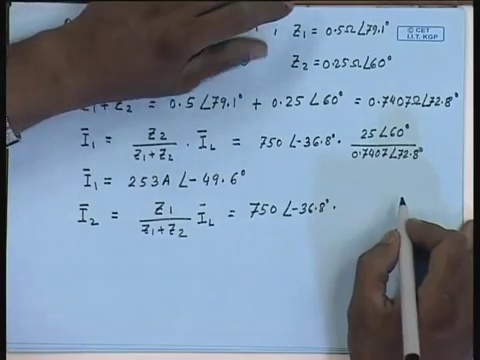 Z₁ = 0.5Ω∠79.1°
© CET
I.I.T. KGP
Z₂ = 0.25Ω∠60°
Z₁+Z₂ = 0.5∠79.1° + 0.25∠60° = 0.7407Ω∠72.8°
Ī₁ = Z₂/(Z₁+Z₂) · Ī_L = 750∠-36.8° · 25∠60°/0.7407∠72.8°
Ī₁ = 253A∠-49.6°
Ī₂ = Z₁/(Z₁+Z₂) Ī_L = 750∠-36.8° ·